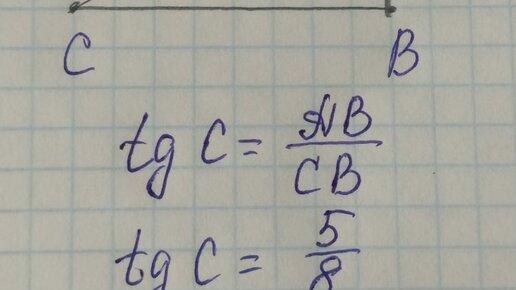 C B
tg C = AB/CB
tg C = 5/8